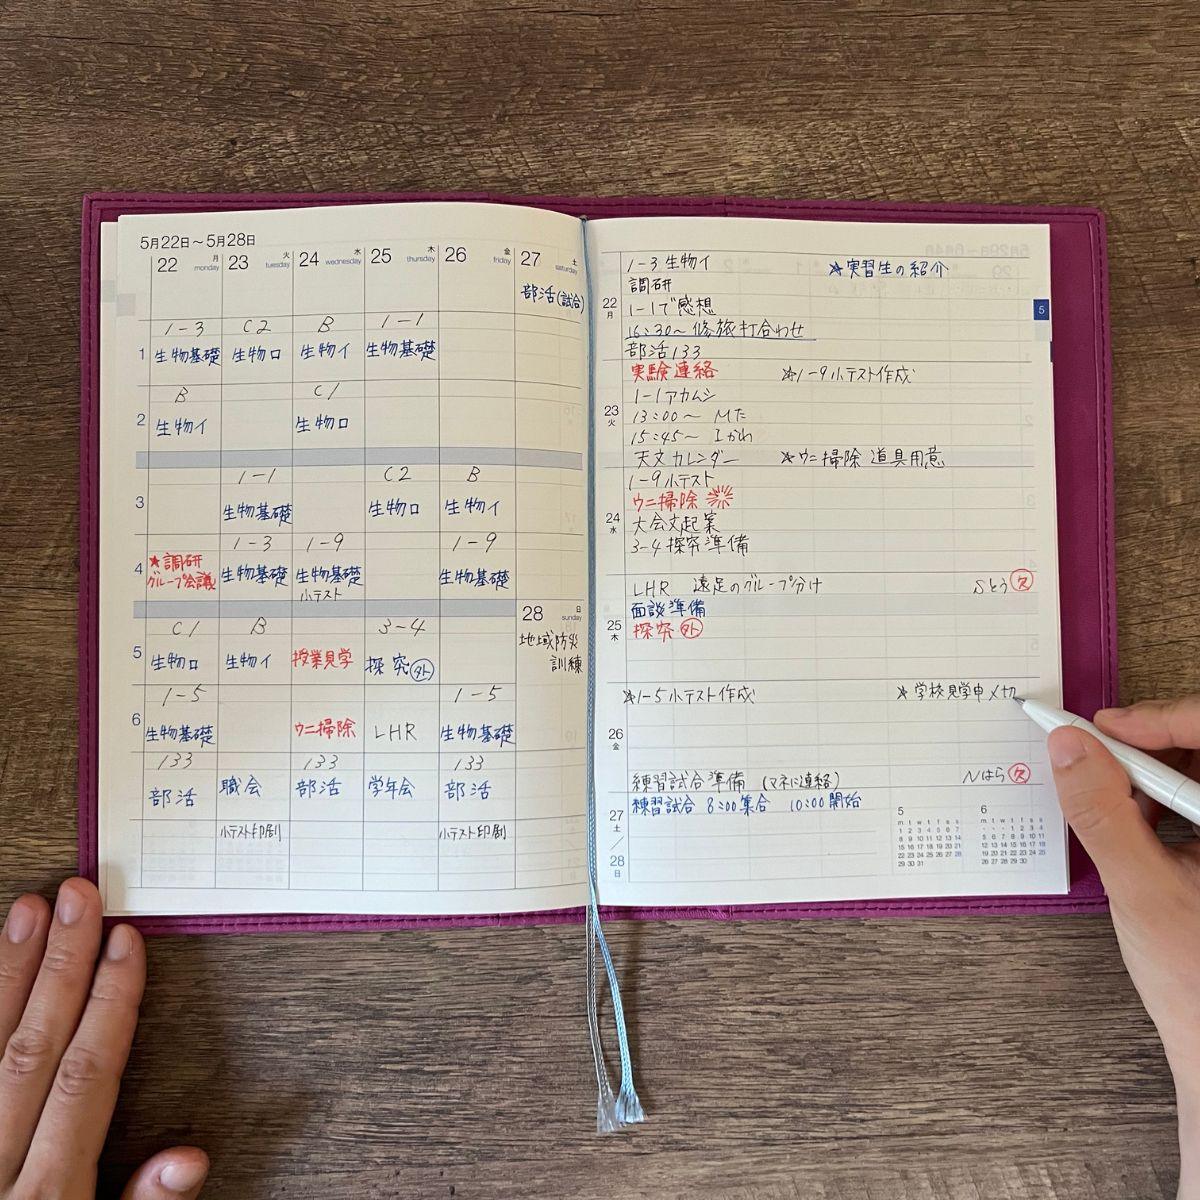 5月22日～5月28日
22 月 monday
23 火 tuesday
24 水 wednesday
25 木 thursday
26 金 friday
27 土 saturday
部活(試合)
1
1-3
生物基礎
C2
生物ロ
B
生物イ
1-1
生物基礎
2
B
生物イ
C1
生物ロ
3
1-1
生物基礎
C2
生物ロ
B
生物イ
4
★調研
グループ会議
1-3
生物基礎
1-9
生物基礎
小テスト
1-9
生物基礎
28 日 sunday
地域防災
訓練
5
C1
生物ロ
B
生物イ
授業見学
3-4
探究 外
6
1-5
生物基礎
ウニ掃除
LHR
1-5
生物基礎
133
部活
職会
133
部活
学年会
133
部活
小テスト印刷
小テスト印刷
22
月
1-3 生物イ ★実習生の紹介
調研
1-1で感想
16:30～ 修旅打合わせ
部活133
23
火
実験連絡 ★1-9小テスト作成
1-1アカムシ
13:00～ Mた
15:45～ Iかわ
天文カレンダー ★ウニ掃除 道具用意
24
水
1-9小テスト
ウニ掃除
大会文起案
3-4 探究準備
25
木
LHR 遠足のグループ分け Sとう 欠
面談準備
探究 外
26
金
★1-5小テスト作成 ★学校見学申〆切
練習試合準備 (マネに連絡) Nはら 欠
27
土
/
28
日
練習試合 8:00集合 10:00開始
5
m t w t f s s
1 2 3 4 5 6 7
8 9 10 11 12 13 14
15 16 17 18 19 20 21
22 23 24 25 26 27 28
29 30 31
6
m t w t f s s
1 2 3 4
5 6 7 8 9 10 11
12 13 14 15 16 17 18
19 20 21 22 23 24 25
26 27 28 29 30
5